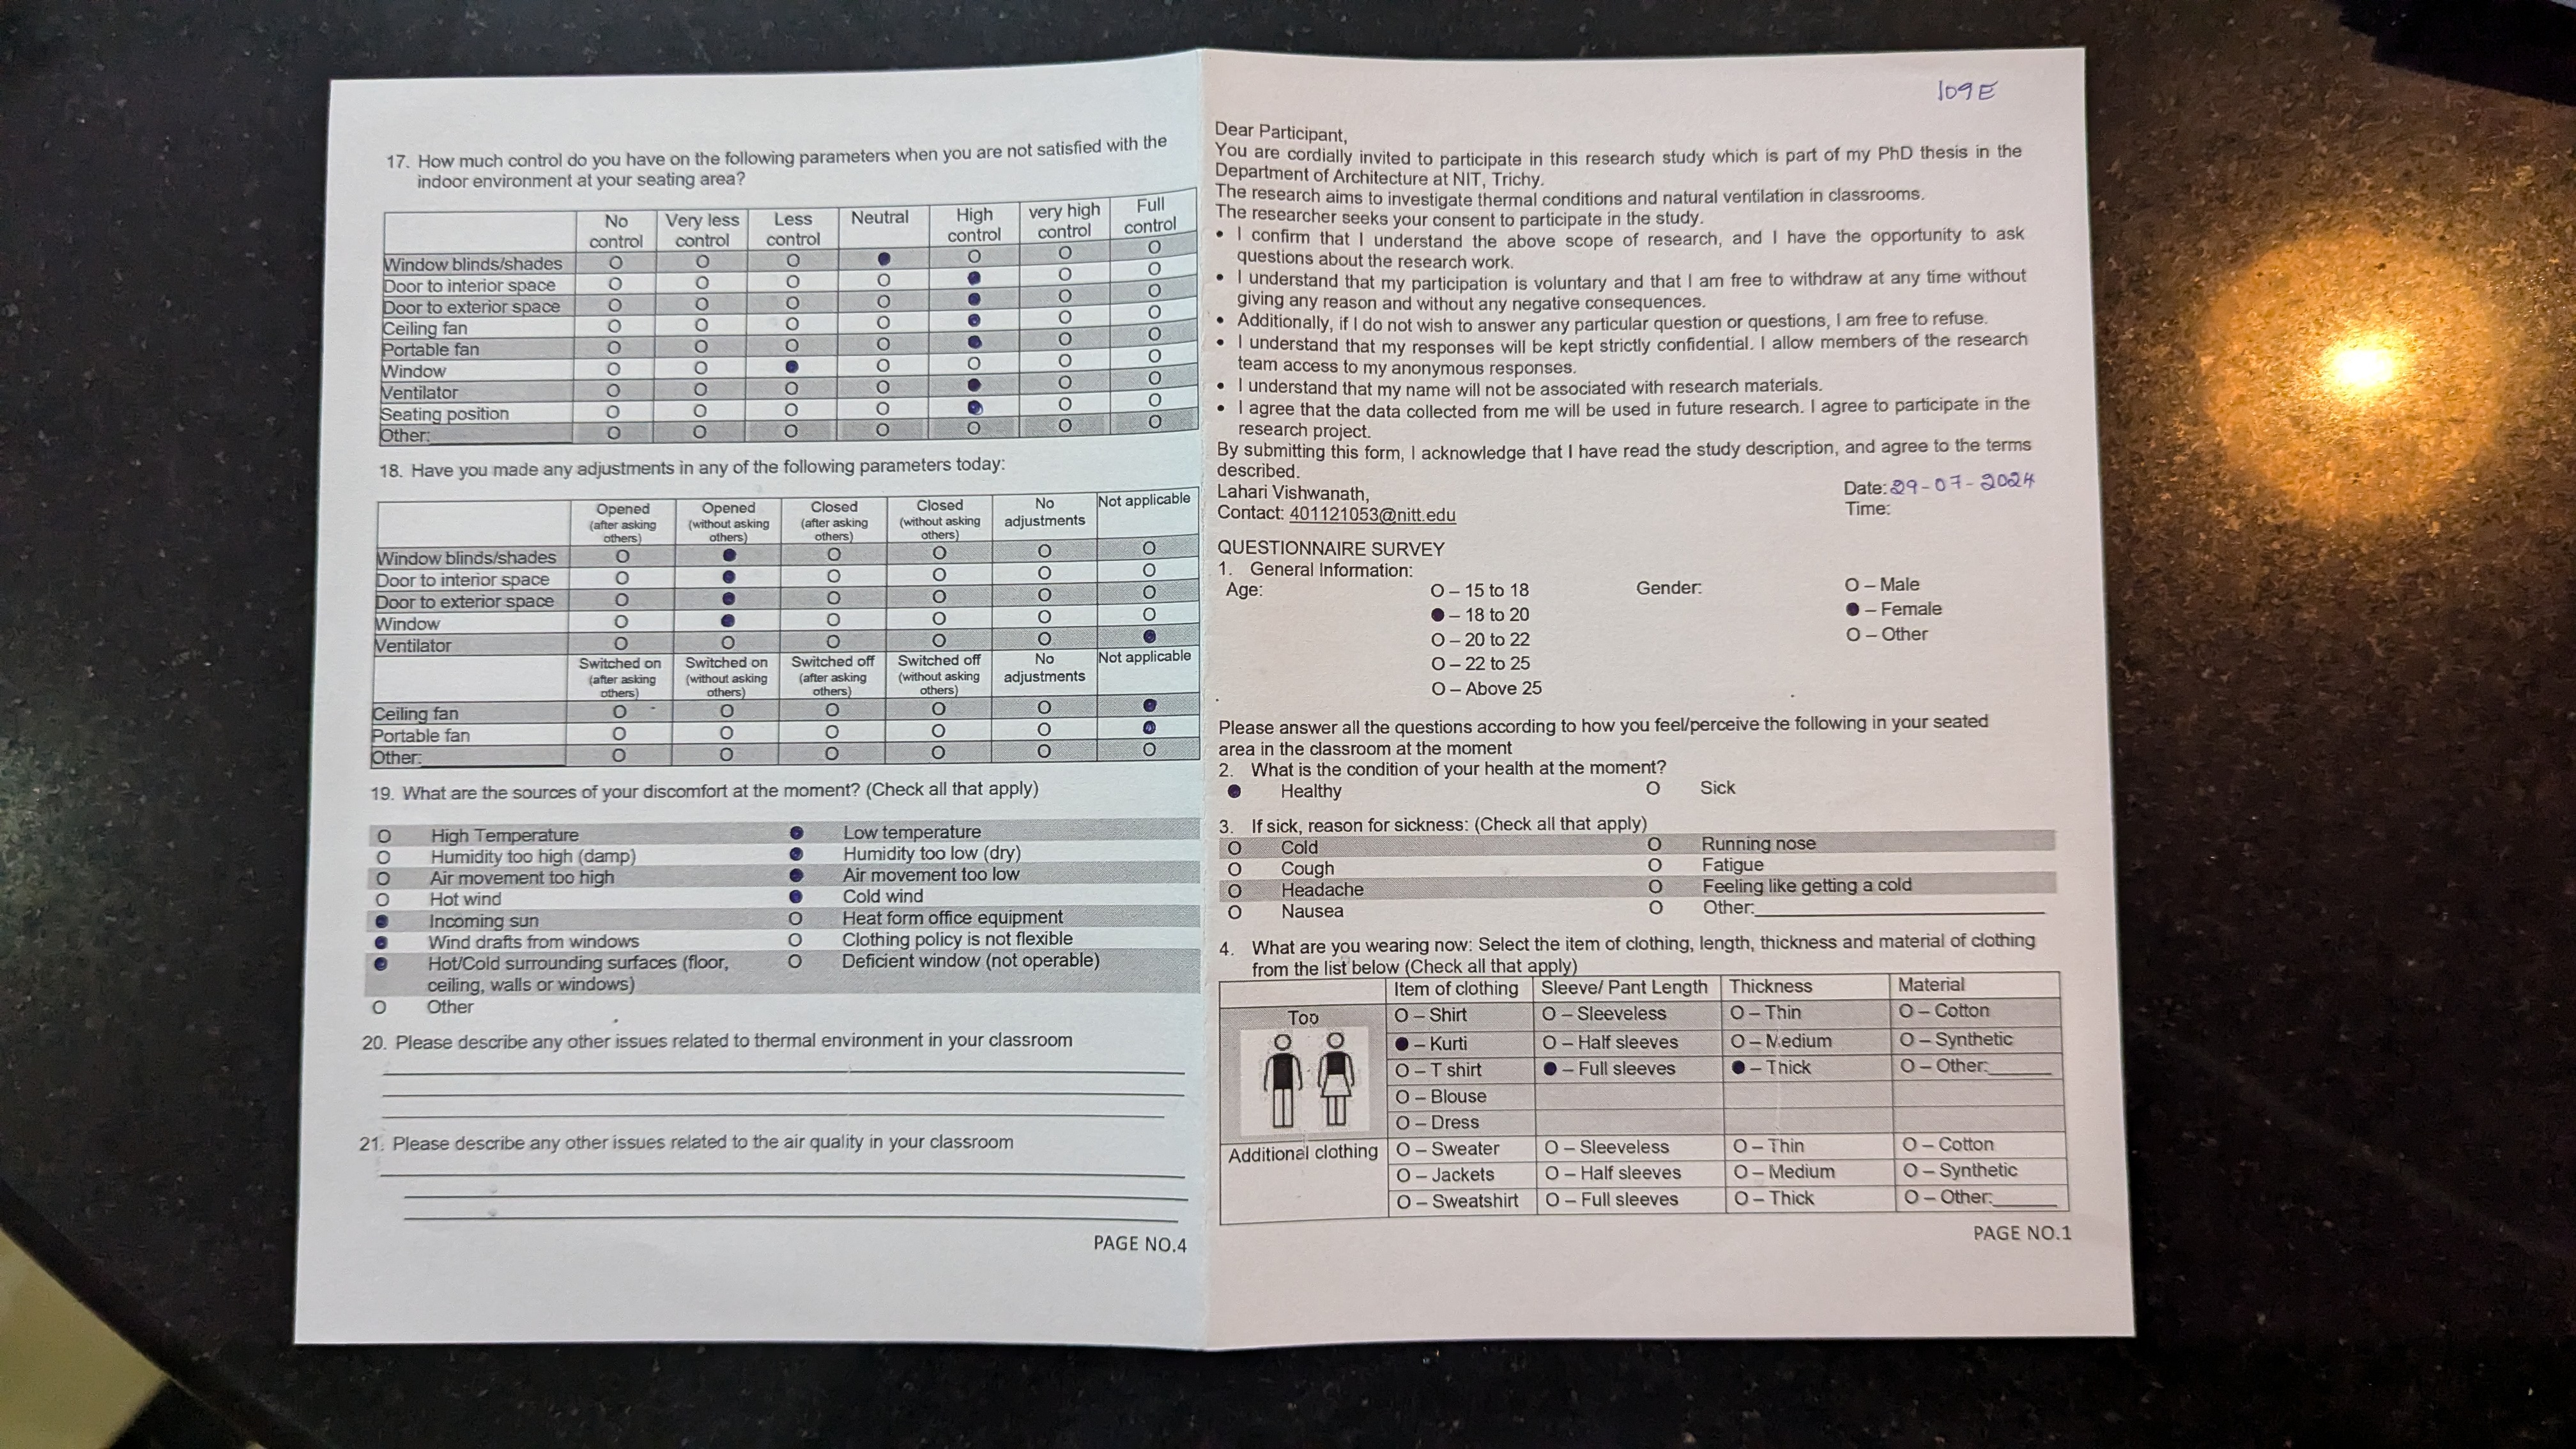 17. How much control do you have on the following parameters when you are not satisfied with the
indoor environment at your seating area?
No control Very less control Less control Neutral High control very high control Full control
Window blinds/shades O O O ● O O O
Door to interior space O O O O ● O O
Door to exterior space O O O O ● O O
Ceiling fan O O O O ● O O
Portable fan O O O O ● O O
Window O O ● O O O O
Ventilator O O O O ● O O
Seating position O O O O ● O O
Other: O O O O O O O
18. Have you made any adjustments in any of the following parameters today:
Opened (after asking others) Opened (without asking others) Closed (after asking others) Closed (without asking others) No adjustments Not applicable
Window blinds/shades O ● O O O O
Door to interior space O ● O O O O
Door to exterior space O ● O O O O
Window O ● O O O O
Ventilator O O O O O ●
Switched on (after asking others) Switched on (without asking others) Switched off (after asking others) Switched off (without asking others) No adjustments Not applicable
Ceiling fan O O O O O ●
Portable fan O O O O O ●
Other: O O O O O O
19. What are the sources of your discomfort at the moment? (Check all that apply)
O High Temperature ● Low temperature
O Humidity too high (damp) ● Humidity too low (dry)
O Air movement too high ● Air movement too low
O Hot wind ● Cold wind
● Incoming sun O Heat form office equipment
● Wind drafts from windows O Clothing policy is not flexible
● Hot/Cold surrounding surfaces (floor, O Deficient window (not operable)
ceiling, walls or windows)
O Other
20. Please describe any other issues related to thermal environment in your classroom
21. Please describe any other issues related to the air quality in your classroom
PAGE NO.4
109E
Dear Participant,
You are cordially invited to participate in this research study which is part of my PhD thesis in the
Department of Architecture at NIT, Trichy.
The research aims to investigate thermal conditions and natural ventilation in classrooms.
The researcher seeks your consent to participate in the study.
• I confirm that I understand the above scope of research, and I have the opportunity to ask
questions about the research work.
• I understand that my participation is voluntary and that I am free to withdraw at any time without
giving any reason and without any negative consequences.
• Additionally, if I do not wish to answer any particular question or questions, I am free to refuse.
• I understand that my responses will be kept strictly confidential. I allow members of the research
team access to my anonymous responses.
• I understand that my name will not be associated with research materials.
• I agree that the data collected from me will be used in future research. I agree to participate in the
research project.
By submitting this form, I acknowledge that I have read the study description, and agree to the terms
described.
Lahari Vishwanath, Date: 29-07-2024
Contact: 401121053@nitt.edu Time:
QUESTIONNAIRE SURVEY
1. General Information:
Age: O – 15 to 18 Gender: O – Male
● – 18 to 20 ● – Female
O – 20 to 22 O – Other
O – 22 to 25
O – Above 25
Please answer all the questions according to how you feel/perceive the following in your seated
area in the classroom at the moment
2. What is the condition of your health at the moment?
● Healthy O Sick
3. If sick, reason for sickness: (Check all that apply)
O Cold O Running nose
O Cough O Fatigue
O Headache O Feeling like getting a cold
O Nausea O Other:
4. What are you wearing now: Select the item of clothing, length, thickness and material of clothing
from the list below (Check all that apply)
Item of clothing Sleeve/ Pant Length Thickness Material
Top O – Shirt O – Sleeveless O – Thin O – Cotton
● – Kurti O – Half sleeves O – Medium O – Synthetic
O – T shirt ● – Full sleeves ● – Thick O – Other:
O – Blouse
O – Dress
Additional clothing O – Sweater O – Sleeveless O – Thin O – Cotton
O – Jackets O – Half sleeves O – Medium O – Synthetic
O – Sweatshirt O – Full sleeves O – Thick O – Other:
PAGE NO.1